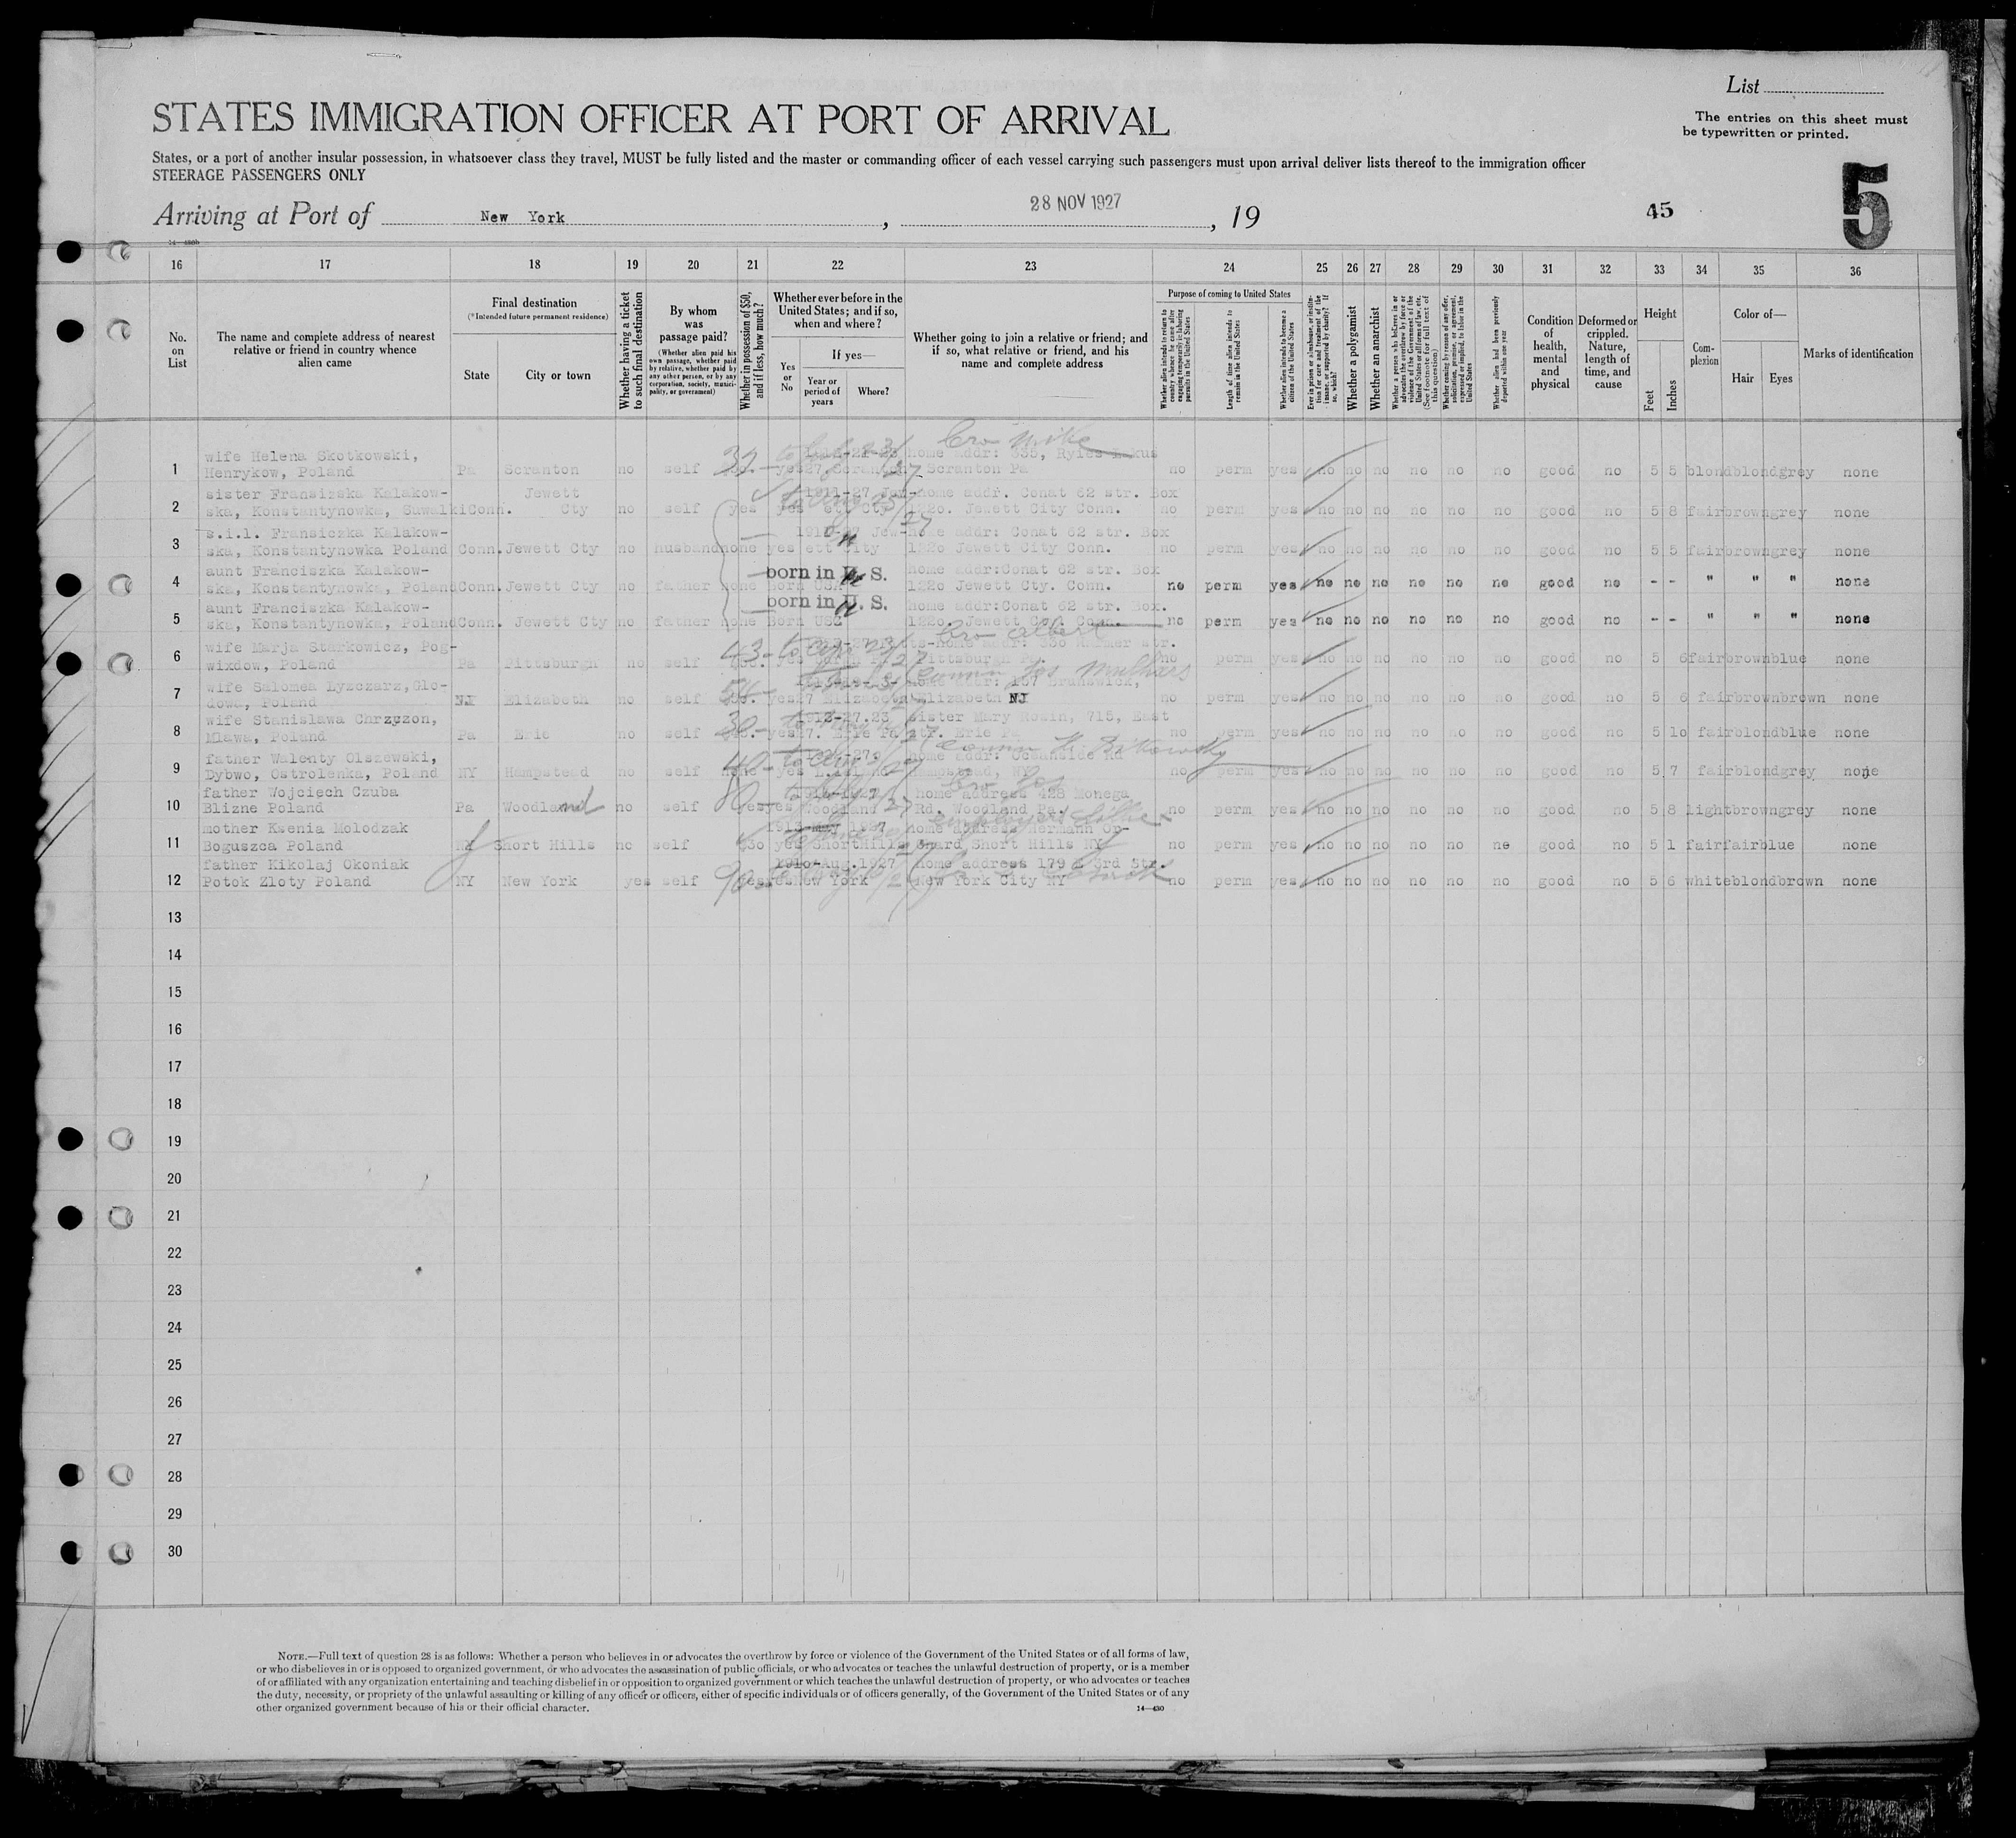 List
STATES IMMIGRATION OFFICER AT PORT OF ARRIVAL
The entries on this sheet must
be typewritten or printed.
States, or a port of another insular possession, in whatsoever class they travel, MUST be fully listed and the master or commanding officer of each vessel carrying such passengers must upon arrival deliver lists thereof to the immigration officer
STEERAGE PASSENGERS ONLY
5
Arriving at Port of New York, 28 NOV 1927, 19
45
14—480b
16 17 18 19 20 21 22 23 24 25 26 27 28 29 30 31 32 33 34 35 36
No. on List
The name and complete address of nearest relative or friend in country whence alien came
Final destination
(*Intended future permanent residence)
State
City or town
Whether having a ticket to such final destination
By whom was passage paid?
(Whether alien paid his own passage, whether paid by relative, whether paid by any other person, or by any corporation, society, municipality, or government)
Whether in possession of $50, and if less, how much?
Whether ever before in the United States; and if so, when and where?
Yes or No
If yes—
Year or period of years
Where?
Whether going to join a relative or friend; and if so, what relative or friend, and his name and complete address
Purpose of coming to United States
Whether alien intends to return to country whence he came after engaging temporarily in laboring pursuits in the United States
Length of time alien intends to remain in the United States
Whether alien intends to become a citizen of the United States
Ever in prison or almshouse, or institution for care and treatment of the insane, or supported by charity? If so, which?
Whether a polygamist
Whether an anarchist
Whether a person who believes in or advocates the overthrow by force or violence of the Government of the United States or all forms of law, etc. (See footnote for full text of this question)
Whether coming by reason of any offer, solicitation, promise, or agreement, expressed or implied, to labor in the United States
Whether alien had been previously deported within one year
Condition of health, mental and physical
Deformed or crippled. Nature, length of time, and cause
Height
Feet
Inches
Complexion
Color of—
Hair
Eyes
Marks of identification
bro Mike
wife Helena Skotkowski, home addr: 335,
1 Henrykow, Poland Pa Scranton no self 32 yes 27 Scranton Scranton Pa no perm yes no no no no no no good no 5 5 blond blond grey none
sister Fransizska Kalakow- Jewett 1911-27 Jew- home addr. Conat 62 str. Box
2 ska, Konstantynowka, Suwalki Conn. Cty no self yes yes ett Cty 122o. Jewett City Conn. no perm yes no no no no no no good no 5 8 fair brown grey none
s.i.l. Fransiczka Kalakow- Jew- home addr: Conat 62 str. Box
3 ska, Konstantynowka Poland Conn. Jewett Cty no husband none yes ett City 122o Jewett City Conn. no perm yes no no no no no no good no 5 5 fair brown grey none
aunt Franciszka Kalakow- born in U. S. home addr:Conat 62 str. Box
4 ska, Konstantynowka, Poland Conn. Jewett Cty no father none Born USA 122o Jewett Cty. Conn. no perm yes no no no no no no good no - - " " " none
aunt Franciszka Kalakow- born in U. S. home addr:Conat 62 str. Box.
5 ska, Konstantynowka, Poland Conn. Jewett Cty no father none Born USA 122o. Jewett Conn. no perm yes no no no no no no good no - - " " " none
bro Albert
wife Marja Starkowicz, Pog- home addr: str.
6 wixdow, Poland Pa Pittsburgh no self 43 yes Pittsburgh no perm yes no no no no no no good no 5 6 fair brown blue none
wife Salomea Lyzczarz, Glo- 167 Brunswick,
7 dowa, Poland NJ Elizabeth no self yes 27 Elizabeth Elizabeth NJ no perm yes no no no no no no good no 5 6 fair brown brown none
wife Stanislawa Chrzyzon, 1912-27.23 sister Mary Rosin, 715, East
8 Mlawa, Poland Pa Erie no self 30 yes 27. Erie Pa str. Erie Pa no perm yes no no no no no no good no 5 1o fair blond blue none
father Walenty Olszewski, home addr: Oceanside Rd
9 Dybwo, Ostrolenka, Poland NY Hampstead no self 40 none yes Hampstead, NY no perm yes no no no no no no good no 5 7 fair blond grey none
father Wojciech Czuba home address 428 Monega
10 Blizne Poland Pa Woodland no self yes yes Woodland Rd, Woodland Pa. no perm yes no no no no no no good no 5 8 light brown grey none
mother Ksenia Molodzak 1913-May 1927 home address Hermann Or-
11 Boguszca Poland Short Hills no self $3o yes Short Hills Short Hills NY no perm yes no no no no no no good no 5 1 fair fair blue none
father Kikolaj Okoniak 191o-Aug.1927 home address 179 E 3rd Str.
12 Potok Zloty Poland NY New York yes self 90 yes yes New York New York City NY no perm yes no no no no no no good no 5 6 white blond brown none
13
14
15
16
17
18
19
20
21
22
23
24
25
26
27
28
29
30
NOTE.—Full text of question 28 is as follows: Whether a person who believes in or advocates the overthrow by force or violence of the Government of the United States or of all forms of law,
or who disbelieves in or is opposed to organized government, or who advocates the assassination of public officials, or who advocates or teaches the unlawful destruction of property, or is a member
of or affiliated with any organization entertaining and teaching disbelief in or opposition to organized government or which teaches the unlawful destruction of property, or who advocates or teaches
the duty, necessity, or propriety of the unlawful assaulting or killing of any officer or officers, either of specific individuals or of officers generally, of the Government of the United States or of any
other organized government because of his or their official character.
14—430